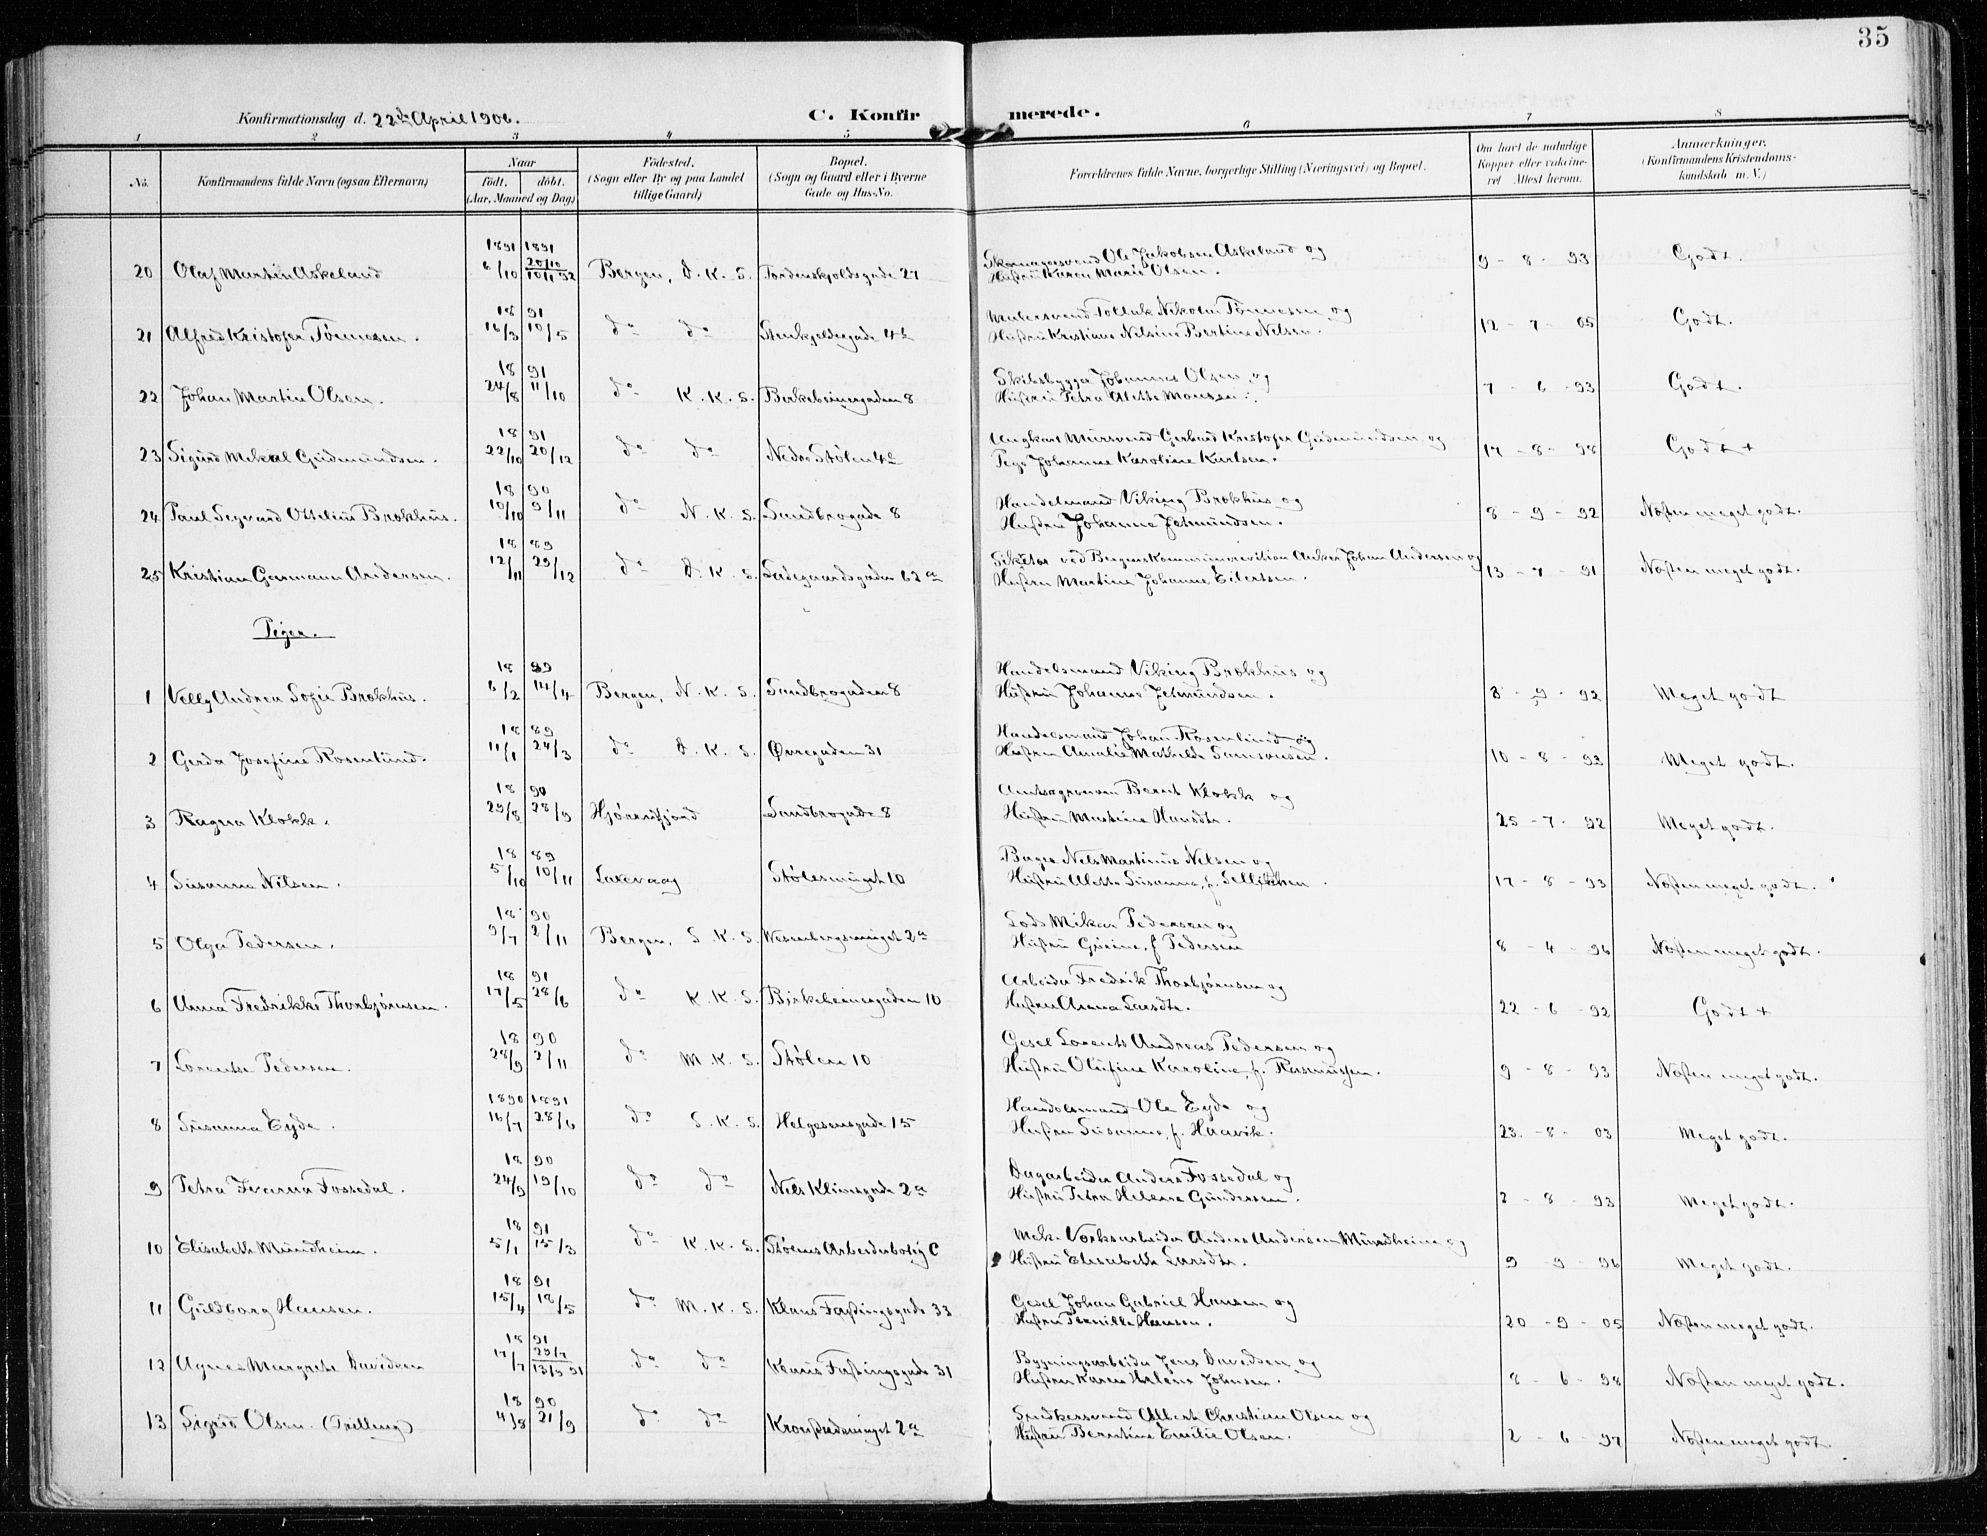 35
Konfirmationsdag d. 22de April 1906.
C. Konfirmerede.
1 2 3 4 5 6 7 8
No.
Konfirmandens fulde Navn (ogsaa Efternavn)
Naar
født. døbt.
(Aar, Maaned og Dag)
Fødested.
(Sogn eller By og paa Landet
tillige Gaard)
Bopæl.
(Sogn og Gaard eller i Byerne
Gade og Hus-No.
Forældrenes fulde Navne, borgerlige Stilling (Næringsvei) og Bopæl.
Om havt de naturlige
Kopper eller vaccine-
ret Attest herom.
Anmærkninger.
(Konfirmandens Kristendoms-
kundskab m. V.)
1891 1891
20 Olaf Martin Askeland 6/10 20/10 10/1 92 Bergen, D. K. S. Tordenskjoldsgade 27 Skomagersvend Ole Jakobsen Askeland og
Hustru Karen Marie Olsen. 9 - 8 - 93 Godt.
18 91
21 Alfred Kristofer Tønnesen. 16/3 10/5 do do Stenkjeldergade 4b Malersvend Tollak Nikolai Tønnessen og
Hustru Kristiane Nilsine Bertine Nilsen. 12 - 7 - 05 Godt.
18 91
22 Johan Martin Olsen. 24/8 11/10 do K. K. S. Birkebeinergaden 8 Skibsbygger Johannes Olsen og
Hustru Petra Alette Monsen. 7 - 6 - 93 Godt.
18 91
23 Sigurd Mikal Gudmundsen. 22/10 20/12 do do Nedre Stølen 4c Ungkarl Mursvend Gerhard Kristofer Gudmundsen og
Pige Johanne Karoline Karlsen. 17 - 8 - 98 Godt +
18 90
24 Paul Segvard Ottelius Brokhus. 10/10 9/11 do N. K. S. Sandbrogade 8 Handelsmand Viking Brokhus og
Hustru Johanne Jetmundsen. 8 - 9 - 92 Næsten meget godt.
18 89
25 Kristian Germann Andersen. 12/11 29/12 do D. K. S. Ladegaardsgaden 62a ved Bergens Kommunerevision Anker Johan Andersen og
Hustru Martine Johanne Eilertsen. 13 - 7 - 91 Næsten meget godt.
Piger.
18 89
1 Velly Andrea Sofie Brokhus. 6/2 14/4 Bergen, N. K. S. Sandbrogaden 8 Handelsmand Viking Brokhus og
Hustru Johanne Jetmundsen. 8 - 9 - 92 Meget godt
18 89
2 Gerda Josefine Rosenlund. 11/1 24/3 do D. K. S. Øvregaden 31 Handelsmand Johan Rosenlund og
Hustru Amalie Mathilde Samsonsen. 10 - 8 - 93 Meget godt.
18 90
3 Ragna Klokk. 29/8 28/9 Hjørendfjord Sandbrogade 8 Amtsagronom Bernt Klokk og
Hustru Martine Hansdtr. 25 - 7 - 92 Meget godt.
18 89
4 Susanne Nilsen. 5/10 10/11 Laxevaag Stølesmuget 10 Bager Nels Martinus Nilsen og
Hustru Alette Susanna, f. 17 - 8 - 93 Næsten meget godt.
18 90
5 Olga Pedersen. 9/7 2/11 Bergen, S. K. S. Wesenbergsmuget 2a Lods Mikal Pedersen og
Hustru Gurine, f Pedersen 8 - 4 - 96 Næsten meget godt.
18 91
6 Anna Fredrikke Thorbjørnsen. 17/5 28/6 do K. K. S. Birkebeinergaden 10 Arbeider Fredrik Thorbjørnsen og
Hustru Anna Larsdtr. 22 - 6 - 92 Godt +
18 90
7 Lorentse Pedersen. 28/9 2/11 do M. K. S. Stølen 10 Gesel Lorents Andreas Pedersen og
Hustru Olufine Karoline, f. Rasmussen. 9 - 8 - 93 Næsten meget godt.
1890 1891
8 Susanna Eyde. 16/7 28/6 do S. K. S. Helgesensgade 15 Handelsmand Ole Eyde og
Hustru Susanne, f. Haavik. 23. - 8 - 03 Meget godt.
18 90
9 Petra Ivarna Fossedal. 24/9 19/10 do do Nels Klimsgade 2a Dagarbeider Anders Fossedal og
Hustru Petra Helene Gundersen. 2 - 8 - 93 Meget godt.
18 91
10 Elisabeth Mundheim. 5/1 15/3 do K. K. S. Stølens Arbeiderbolig C Mek. Værksarbeider Anders Andersen Mundheim og
Hustru Elisabeth Larsdtr. 9 - 9 - 96 Meget godt.
18 91
11 Guldborg Hansen. 15/4 18/5 do M. K. S. Klaus Fastingsgade 33 Gesel Johan Gabriel Hansen og
Hustru Pernille Hansen. 20 - 9 - 05 Næsten meget godt.
18 91
12 Agnes Margrete Davidsen 17/7 29/7 13/9 91 do do Klaus Fastingsgade 31 Bygningsarbeider Jens Davidsen og
Hustru Karen Helene Johnsen. 8 - 6 - 98 Næsten meget godt.
18 90
13 Sigrid Olsen. (Trilling) 4/8 21/9 do do Kronstadsmuget 2a Snedkersvend Albert Christian Olsen og
Hustru Berntine Emilie Olsen. 2 - 6 - 97 Næsten meget godt.